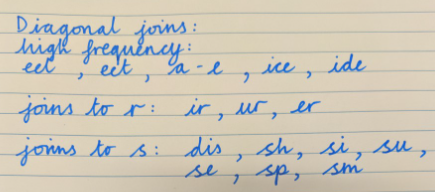 Diagonal joins:
high frequency:
eel , eet , a-e , ice , ide
joins to r: ir, ur, er
joins to s: dis , sh, si, su,
se , sp, sm